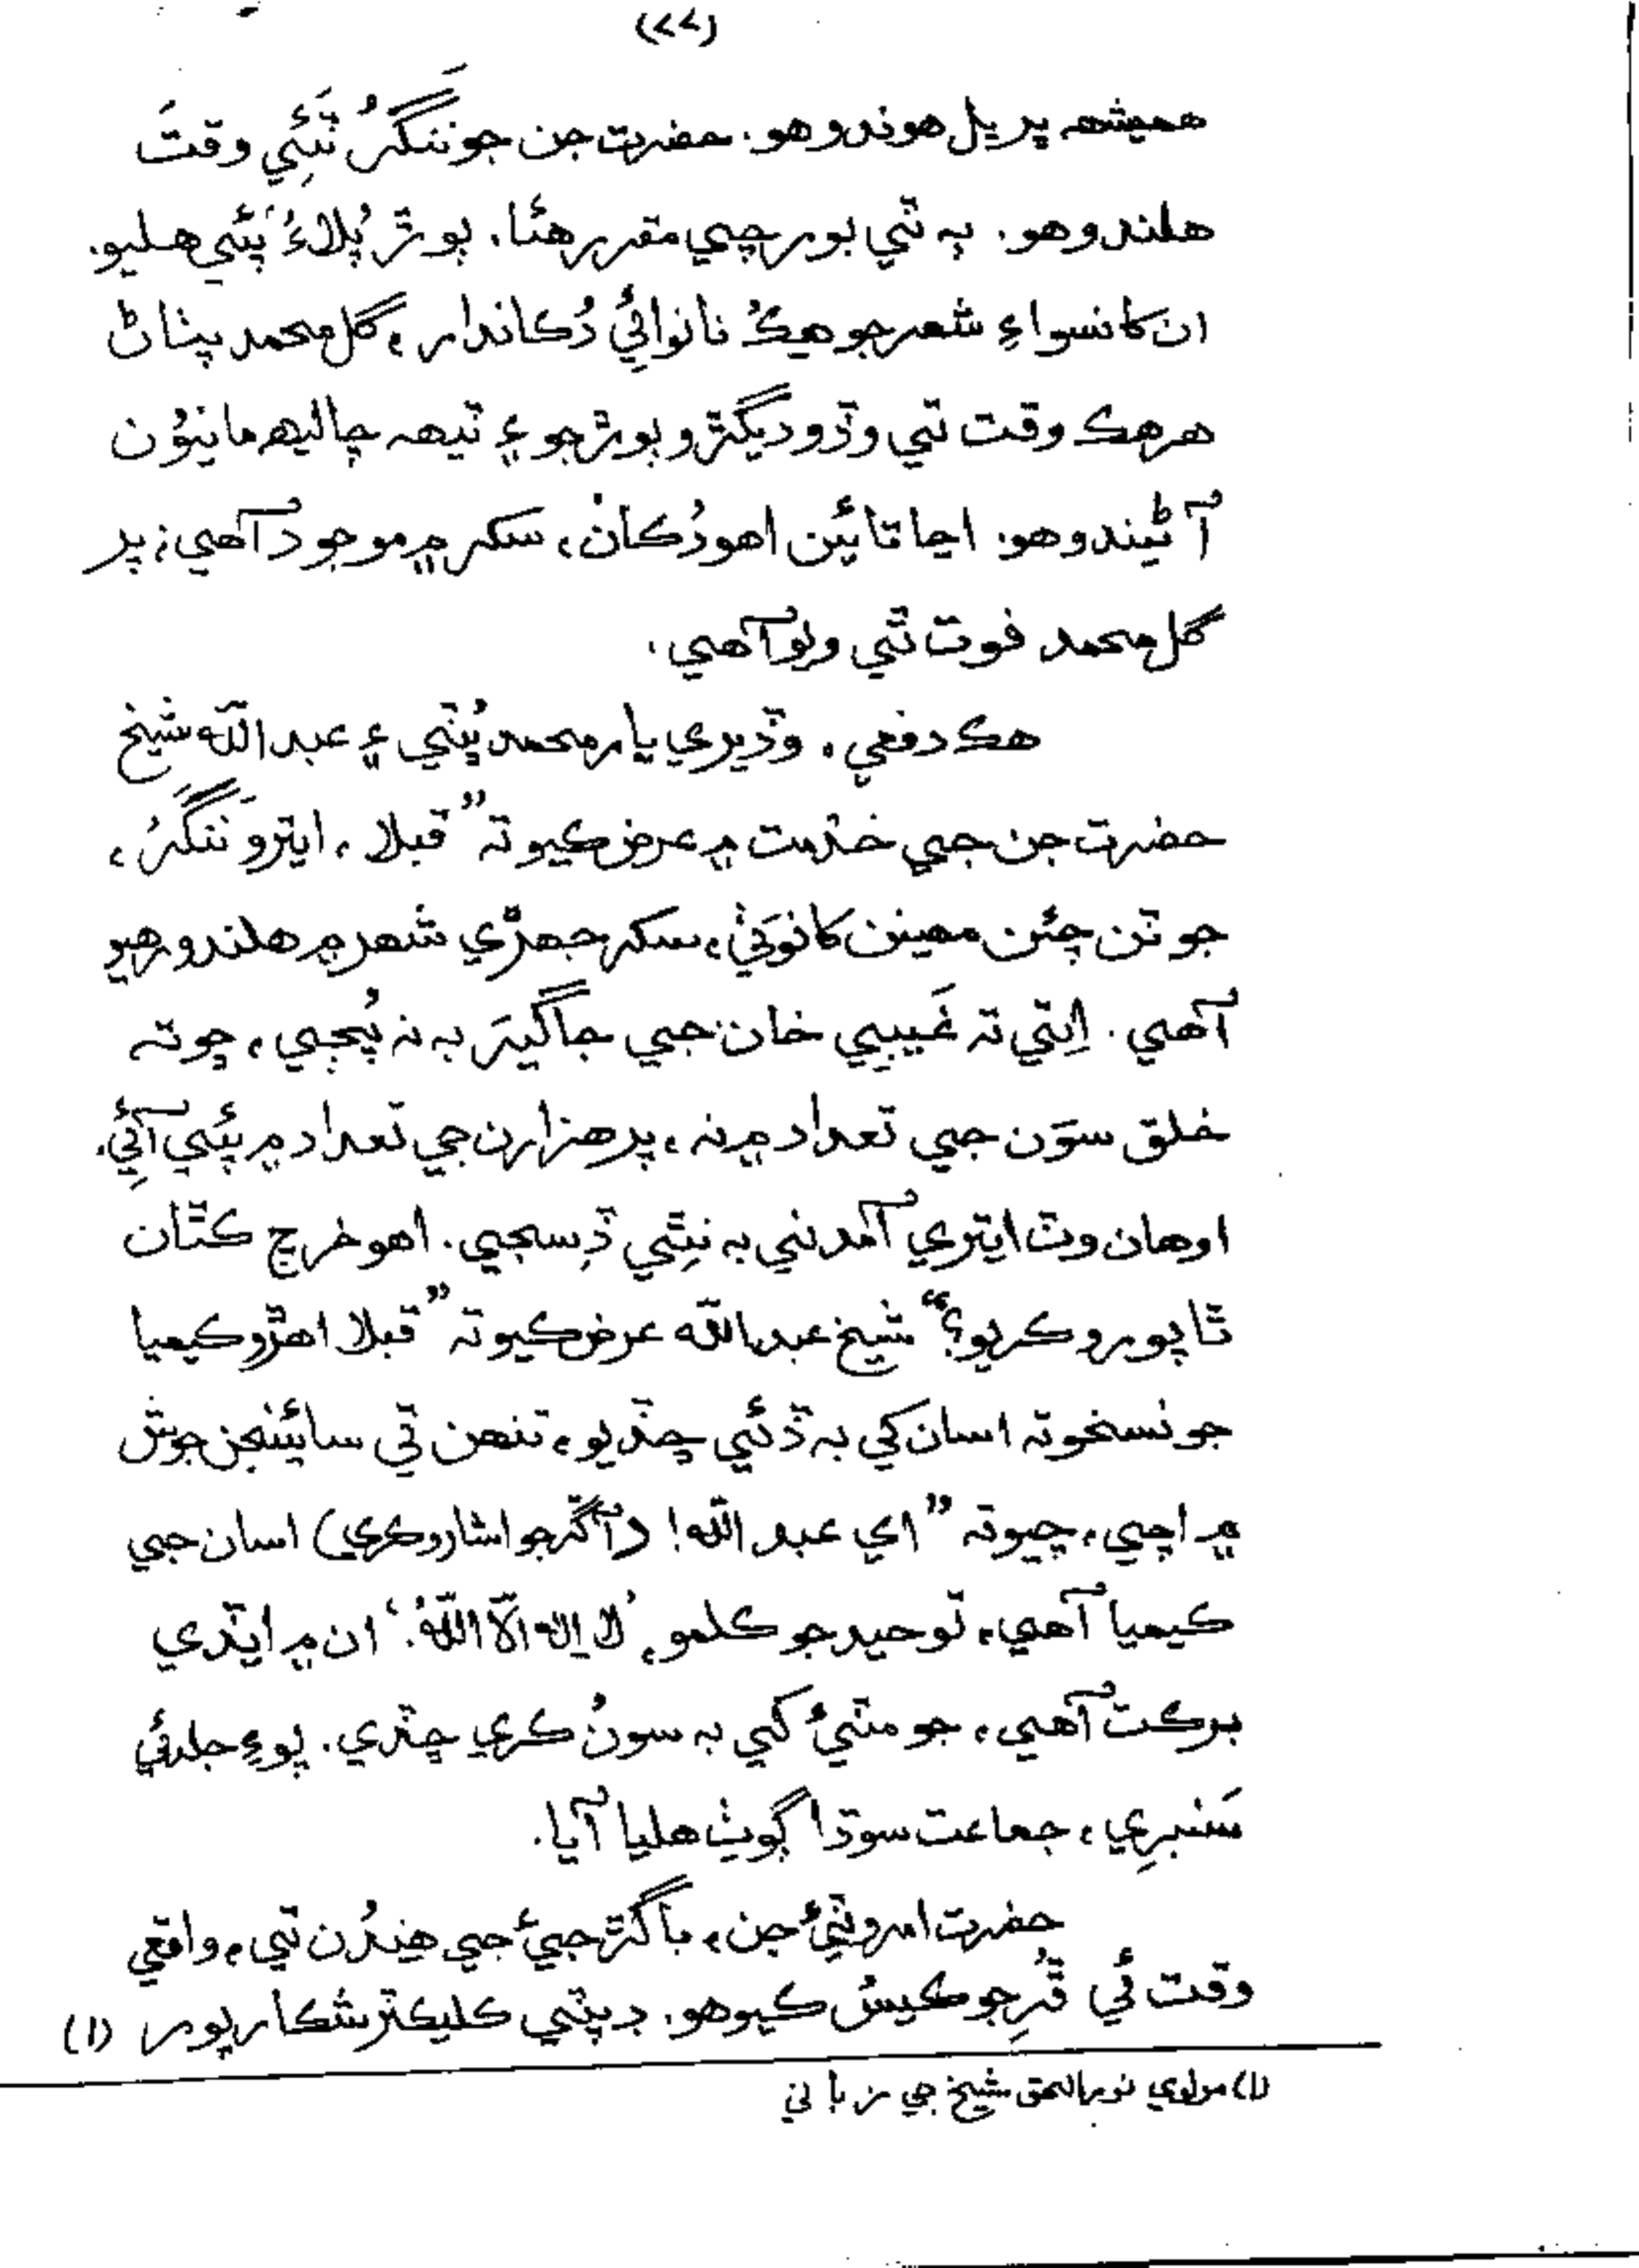 (۷۷)
هميشھ ڀريل هوندو هو. حضرت جن جو ننگرُ ٽَئِي وقتَ
هلندو هو. ٻه ٽي بورچي مقرر هئا. ٻوڙ پُلاءُ پئي هليو.
ان کانسواءِ شهر جو هيڪُ نانوائِيُ دُڪاندار، گل محمد پٺاڻ
هر هڪ وقت تي وڏو ديگڙو ٻوڙ جو ۽ ٽيھ چاليھ مانيُون
آڻيندو هو. اڃا تائين اهو دُڪانُ، سکر ۾ موجود آهي؛ پر
گل محمد فوت ٿي ويو آهي.
هڪ دفعي، وڏيري يار محمد پُٺي ۽ عبدالله شيخ
حضرت جن جي خدمت ۾ عرض ڪيو ته ”قبلا، ايترو ننگَرُ،
جو ٽن چئن مهينن کان وَٺي، سکر جهڙي شهر ۾ هلندو رهيو
آهي. اِتي ته غَيبي خان جي جاگيرَ به نه پُڄي، ڇو ته
خلق سوَن جي تعداد ۾ نه، پر هزارن جي تعداد ۾ پئي آئِي.
اوهان وٽ ايتري آمدني به نٿِي ڏِسجي. اهو خرچ ڪٿان
ٿا پورو ڪريو؟“ شيخ عبدالله عرض ڪيو ته ”قبلا اهڙو ڪيميا
جو نسخو ته اسان کي به ڏئي ڇڏيو، تنهن تي سائينجن جوش
۾ اچي، چيو ته ”اي عبدالله! (آڱر جو اشارو ڪري) اسان جي
ڪيميا آهي، توحيد جو ڪلمو، ’لا اِلٰه الّا اللّٰهُ.‘ ان ۾ ايڏي
برڪت آهي، جو مٽيءُ کي به سونُ ڪري ڇڏي. پوءِ جلدئي
سَنبري، جماعت سوڌا ڳوٺ هليا آيا.
حضرت امروٽيءُ جن، باگڙجيءُ جي هندُن تي، واقعي
وقت ئي ڦُرِ جو ڪيسُ ڪيو هو. ڊپٽي ڪليڪٽر شڪارپور (۱)
(۱) مولوي نورالحق شيخ جي زباني